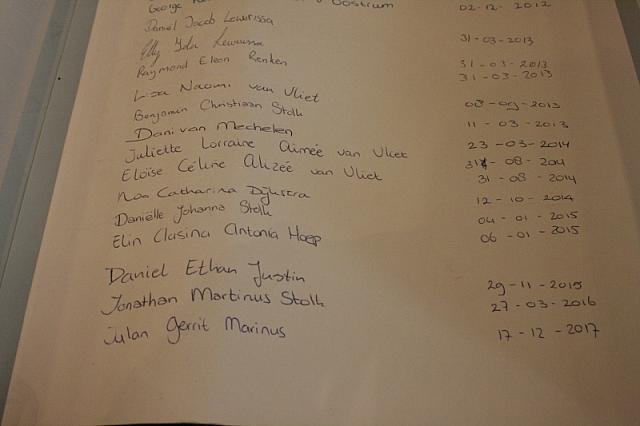 George Oostrum 02-12-2012
Daniel Jacob Lewerissa
Elly Ida Lewerissa 31-03-2013
Raymond Eleon Renken 31-03-2013
31-03-2013
Lisa Naomi van Vliet
Benjamin Christiaan Stolk 08-09-2013
Dani van Mechelen 11-03-2013
Juliette Lorraine Aimée van Vliet 23-03-2014
Eloïse Céline Alizée van Vliet 31-08-201
31-08-2014
Noa Catharina Dijkstra 12-10-2014
Daniëlle Johanna Stolk 04-01-2015
Elin Clasina Antonia Hoep 06-01-2015
Daniel Ethan Justin 29-11-2015
Jonathan Martinus Stolk 27-03-2016
Julan Gerrit Marinus 17-12-2017